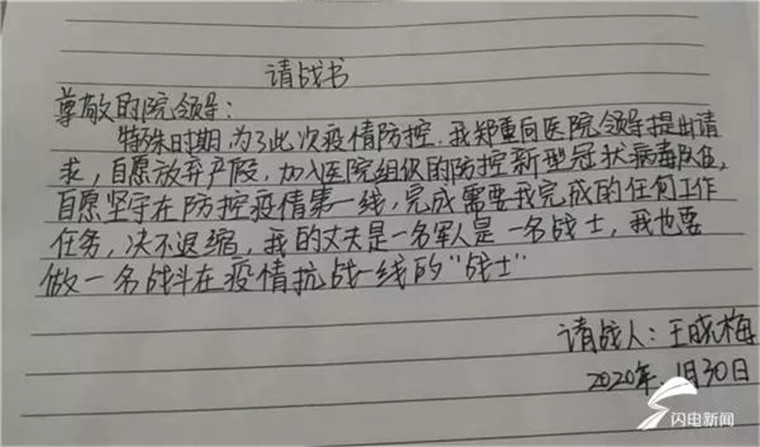 请战书
尊敬的院领导：
特殊时期，为了此次疫情防控，我郑重向医院领导提出请
求，自愿放弃产假，加入医院组织的防控新型冠状病毒队伍，
自愿坚守在防控疫情第一线，完成需要我完成的任何工作
任务，决不退缩，我的丈夫是一名军人是一名战士，我也要
做一名战斗在疫情抗战一线的“战士”
请战人：王晓梅
2020年1月30日
闪电新闻